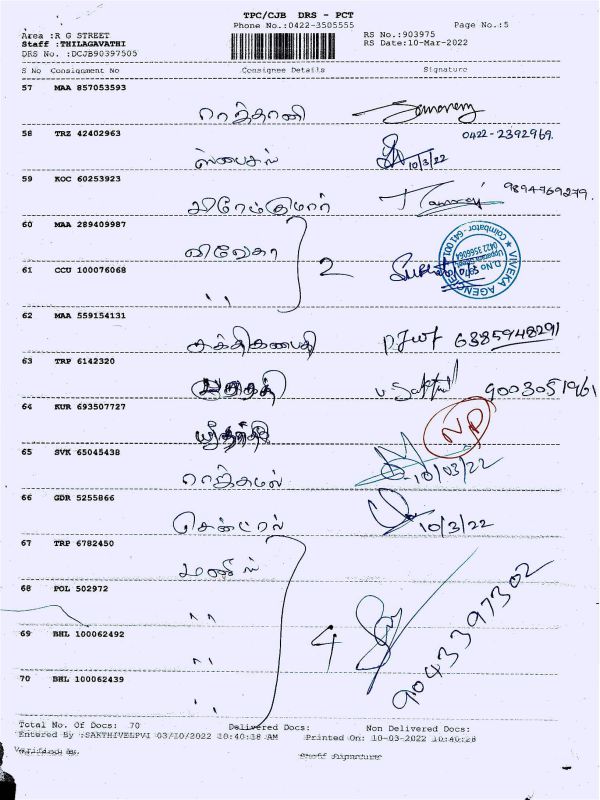 TPC/CJB DRS - PCT
Phone No.:0422-3505555
Page No.:5
Area :R G STREET
RS No.:903975
Staff :THILAGAVATHI
RS Date:10-Mar-2022
DRS No. :DCJB90397505
S No Consignment No Consignee Details Signature
57 MAA 857053593
ராஜ்தானி
58 TRZ 42402963 0422-2392969.
ஸ்பைசஸ் 10/3/22
59 KOC 60253923
பிரேம்குமார் 9894769279.
60 MAA 289409987
விவேகா
2
VIVEKA AGENCIES
Coimbator - 641 001
61 CCU 100076068
"
62 MAA 559154131
சக்திகணபதி 6385948291
63 TRP 6142320
9003051961
64 KUR 693507727
NP
65 SVK 65045438
ராஜ்கமல் 10/03/22
66 GDR 5255866
சென்ட்ரல் 10/3/22
67 TRP 6782450
68 POL 502972
"
4
9043397302
69 BHL 100062492
"
70 BHL 100062439
"
Total No. Of Docs: 70 Delivered Docs: Non Delivered Docs:
Entered By :SAKTHIVELPVJ 03/10/2022 10:40:18 AM Printed On: 10-03-2022 10:40:28
Verified By
Staff Signature